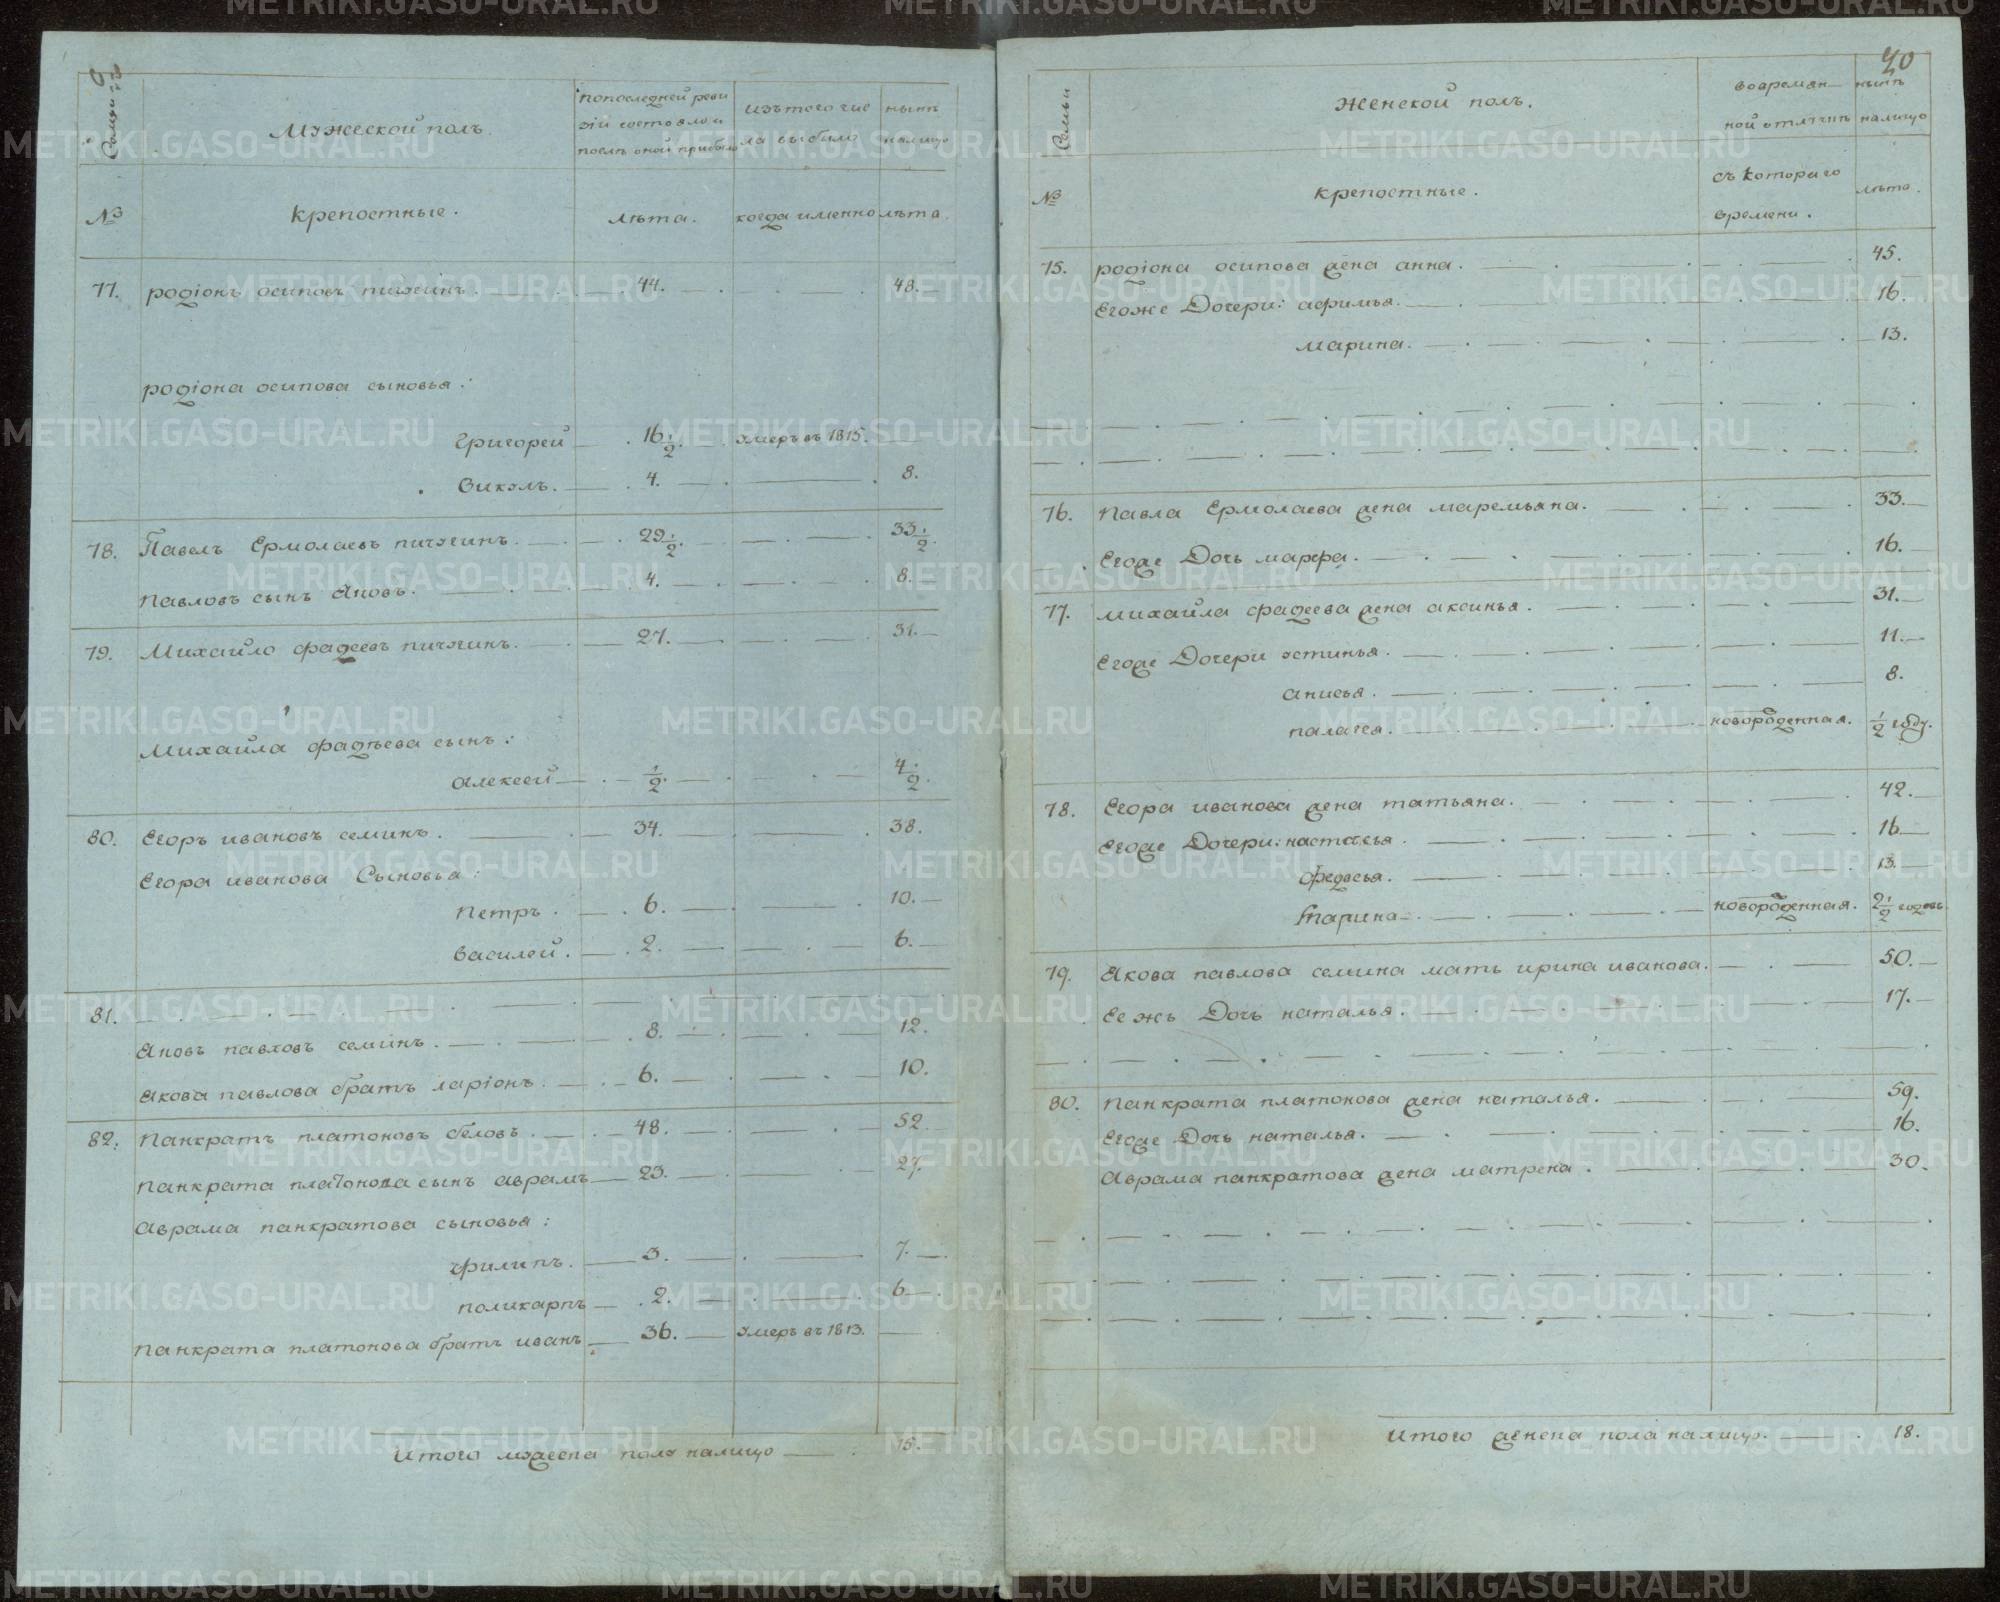 Семьи
Мужеской полъ.
попоследней реви
зіи состояло и
послѣ оной прибыло
изътого чис
ла выбыло
нынѣ
налицо
№
крепостные.
лѣта.
когда именно
лѣта.
77. родіонъ осиповъ пичюгинъ. 44. 48.
родіона осипова сыновья:
григорей 16 1/2. умеръ въ 1815.
викулъ. 4. 8.
78. Павелъ Ермолаевъ пичюгинъ. 29 1/2. 33 1/2.
павловъ сынъ Яковъ. 4. 8.
79. Михайло фадеевъ пичюгинъ. 27. 31.
Михайла фадѣева сынъ:
алексей 1/2. 4 1/2.
80. Егоръ ивановъ семинъ. 34. 38.
Егора иванова Сыновья:
петръ. 6. 10.
василей. 2. 6.
81.
Яковъ павловъ семинъ. 8. 12.
Якова павлова братъ ларіонъ. 6. 10.
82. панкратъ платоновъ беловъ. 48. 52.
панкрата платонова сынъ аврамъ 23. 27.
аврама панкратова сыновья:
филипъ. 3. 7.
поликарпъ 2. 6.
панкрата платонова братъ иванъ 36. умеръ въ 1813.
Итого мужеска полу налицо 15.
40
Семьи
Женской полъ.
вовремян
ной отлучкѣ
нынѣ
налицо
№
крепостные.
съ котораго
времени.
лѣта.
75. родіона осипова жена анна. 45.
Егоже Дочери: афимья. 16.
марина. 13.
76. павла Ермолаева жена маремьяна. 33.
Егоже Дочь марфа. 16.
77. михайла фадеева жена аксинья. 31.
Егоже Дочери устинья. 11.
анисья. 8.
палагея. новорожденная. 1/2 году.
78. Егора иванова жена татьяна. 42.
Егоже Дочери: настасья. 16.
федосья. 13.
марина. новорожденная. 2 1/2 годовъ.
79. Якова павлова семина мать ирина иванова. 50.
Ее жъ Дочь наталья. 17.
80. панкрата платонова жена наталья. 59.
Егоже Дочь наталья. 16.
Аврама панкратова жена матрена. 30.
Итого женска пола налицо. 18.
METRIKI.GASO-URAL.RU